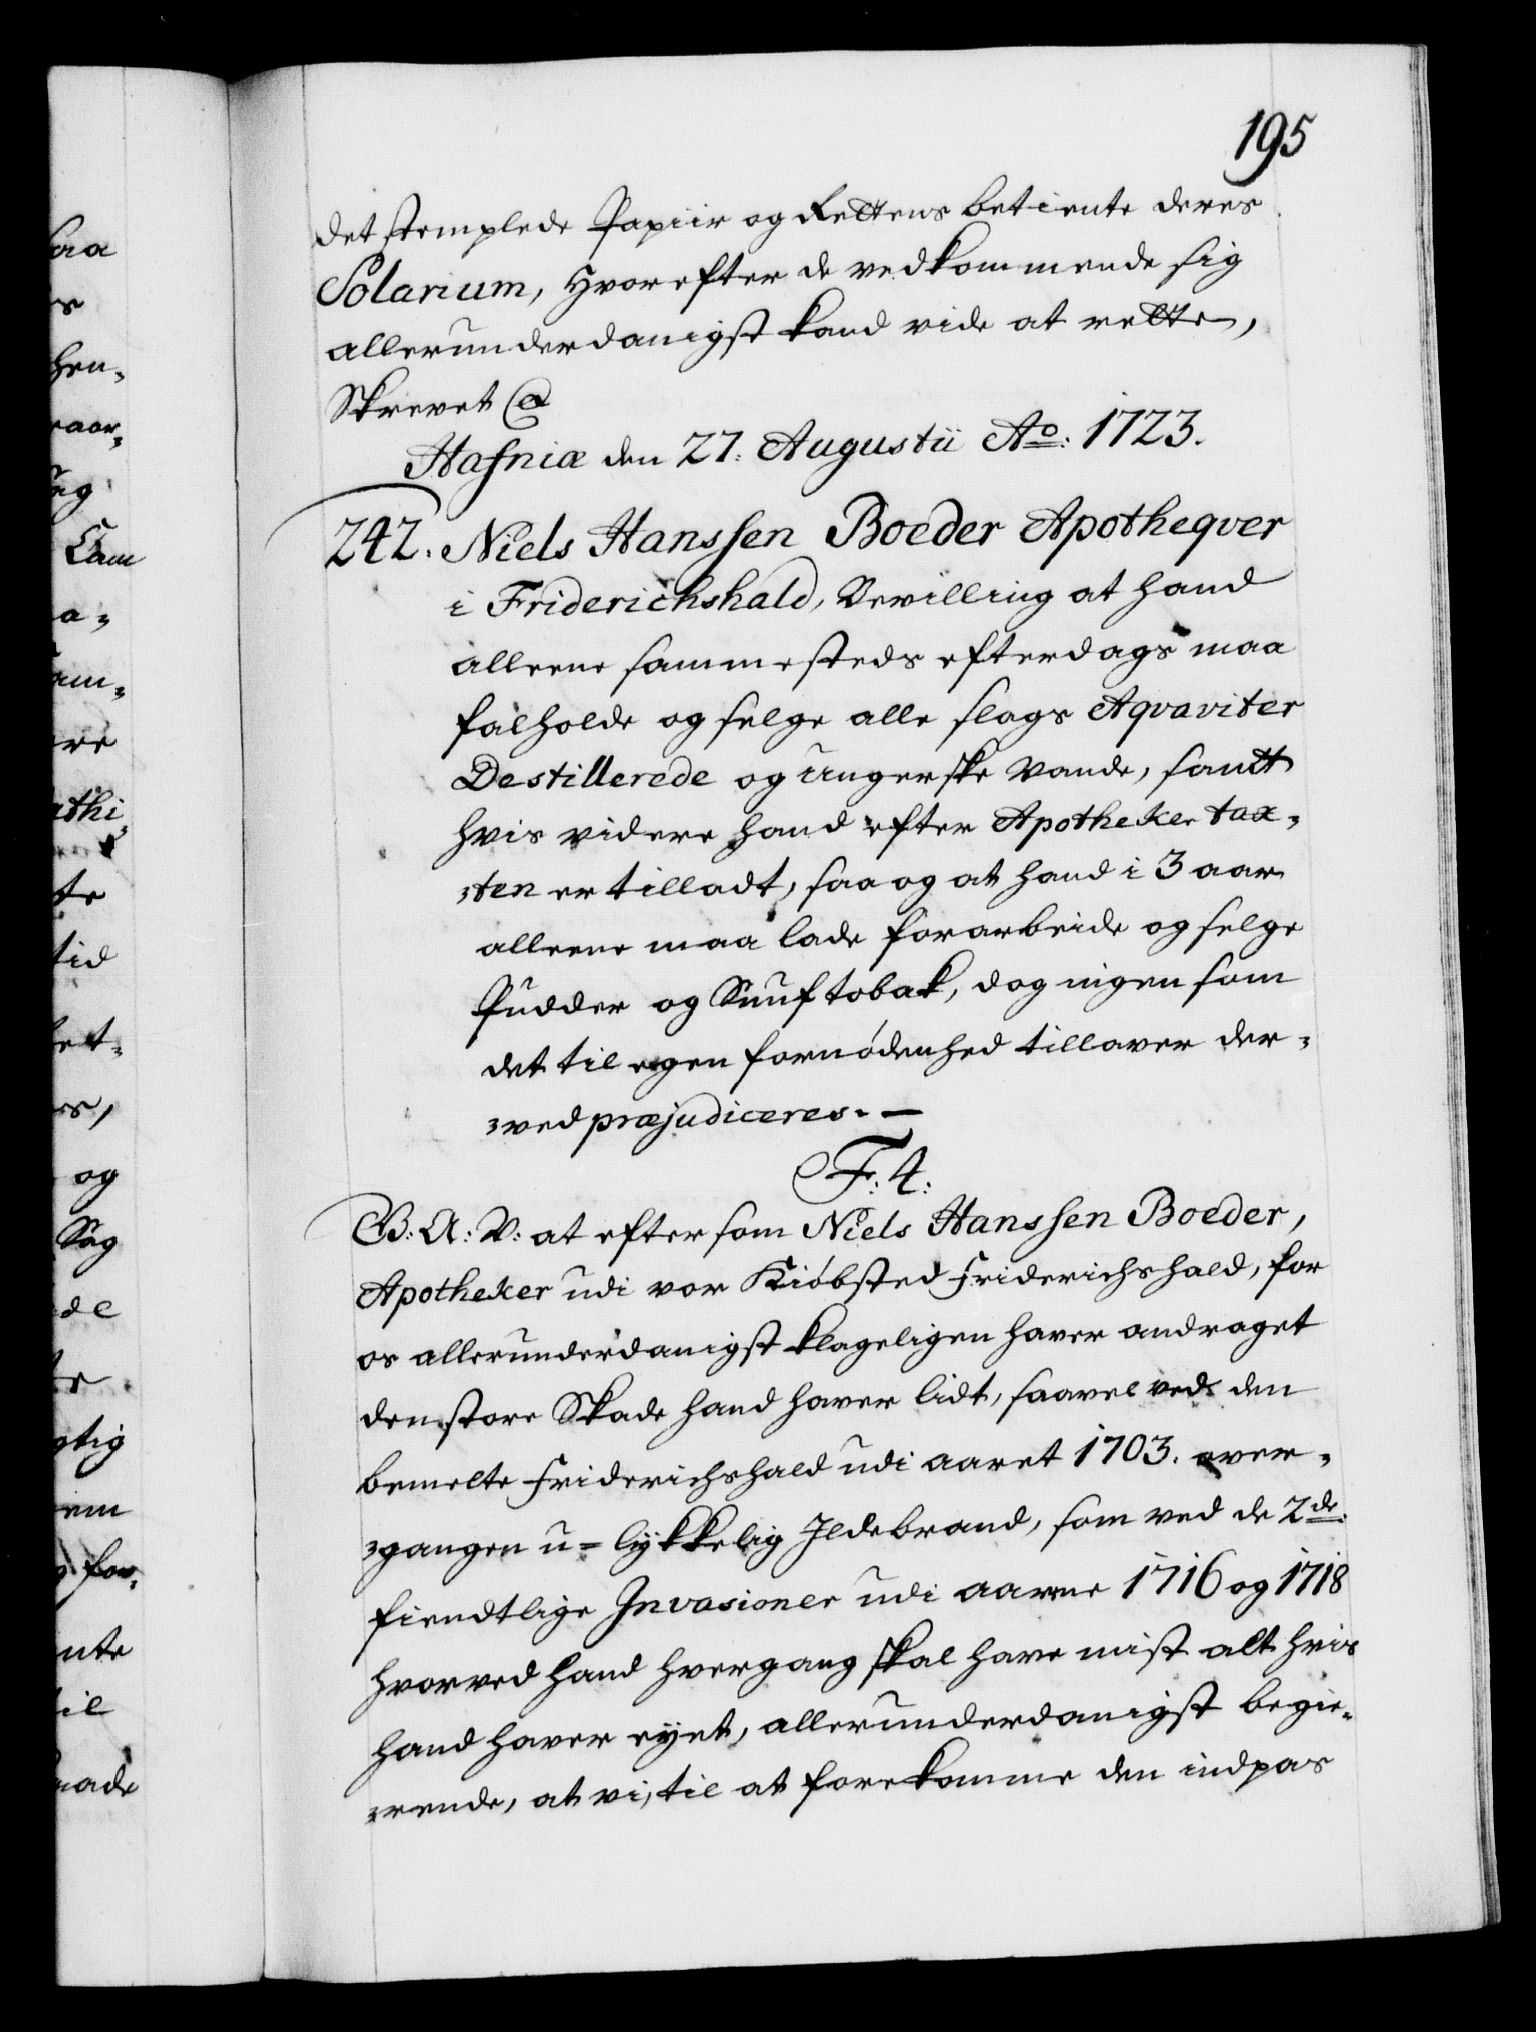 195
det stemplede Papiir og Rettens betiente deres
Solarium, Hvorefter de vedkommende sig
allerunderdanigst kand vide at rette,
Skrevet
Hafniæ den 27. Augustii Ao: 1723.
242. Niels Hanssen Boeder Apotheqver
i Friderichshald, Bevilling at hand
alleene sammesteds efterdags maa
falholde og selge alle slags Aqvaviter
Destillerede og Ungerske Vande, samt
hvis videre hand efter Apotheker tax-
-ten er tilladt, saa og at hand i 3 aar
alleene maa lade forarbeide og selge
Pudder og Snuftobak, dog ingen som
det til egen fornødenhed tillaver der-
-ved præjudiceres. —
F: 4:
G: A: V: at eftersom Niels Hanssen Boeder,
Apotheker udi vor Kiøbsted Friderichshald, for
os allerunderdanigst klageligen haver andraget
den store Skade hand haver lidt, saavel ved den
bemelte Friderichshald udi aaret 1703. over-
-gangen u-lykkelig Ildebrand, som ved de 2de
fiendtlige Invasioner udi aarene 1716 og 1718
hvorved hand hvergang skal have mist alt hvis
hand haver eyet, allerunderdanigst begie-
-rende, at vi, til at forekomme den indpas